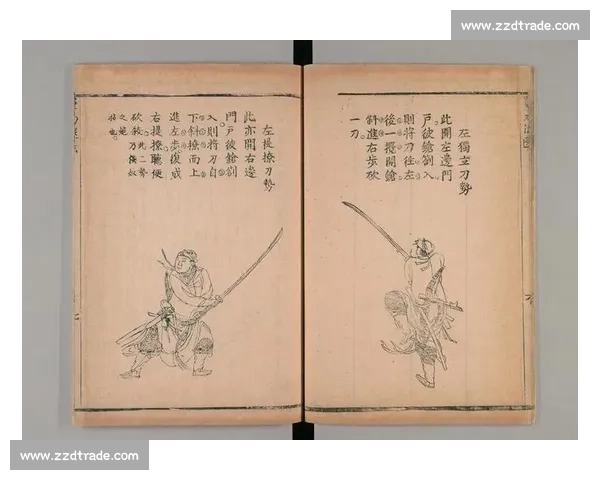 www.zzdtrade.com
左獨立刀勢
此開左邊門
戶彼鎗劄入
則將刀往左
後一攪開鎗
斜進右步砍
一刀
左提撩刀勢
此亦開右邊
門戶彼鎗劄
入則將刀自
下斜撩而上
進左步復成
右提撩聽便
砍殺此二勢
乃倭奴
之絕
招也
www.zzdtrade.com